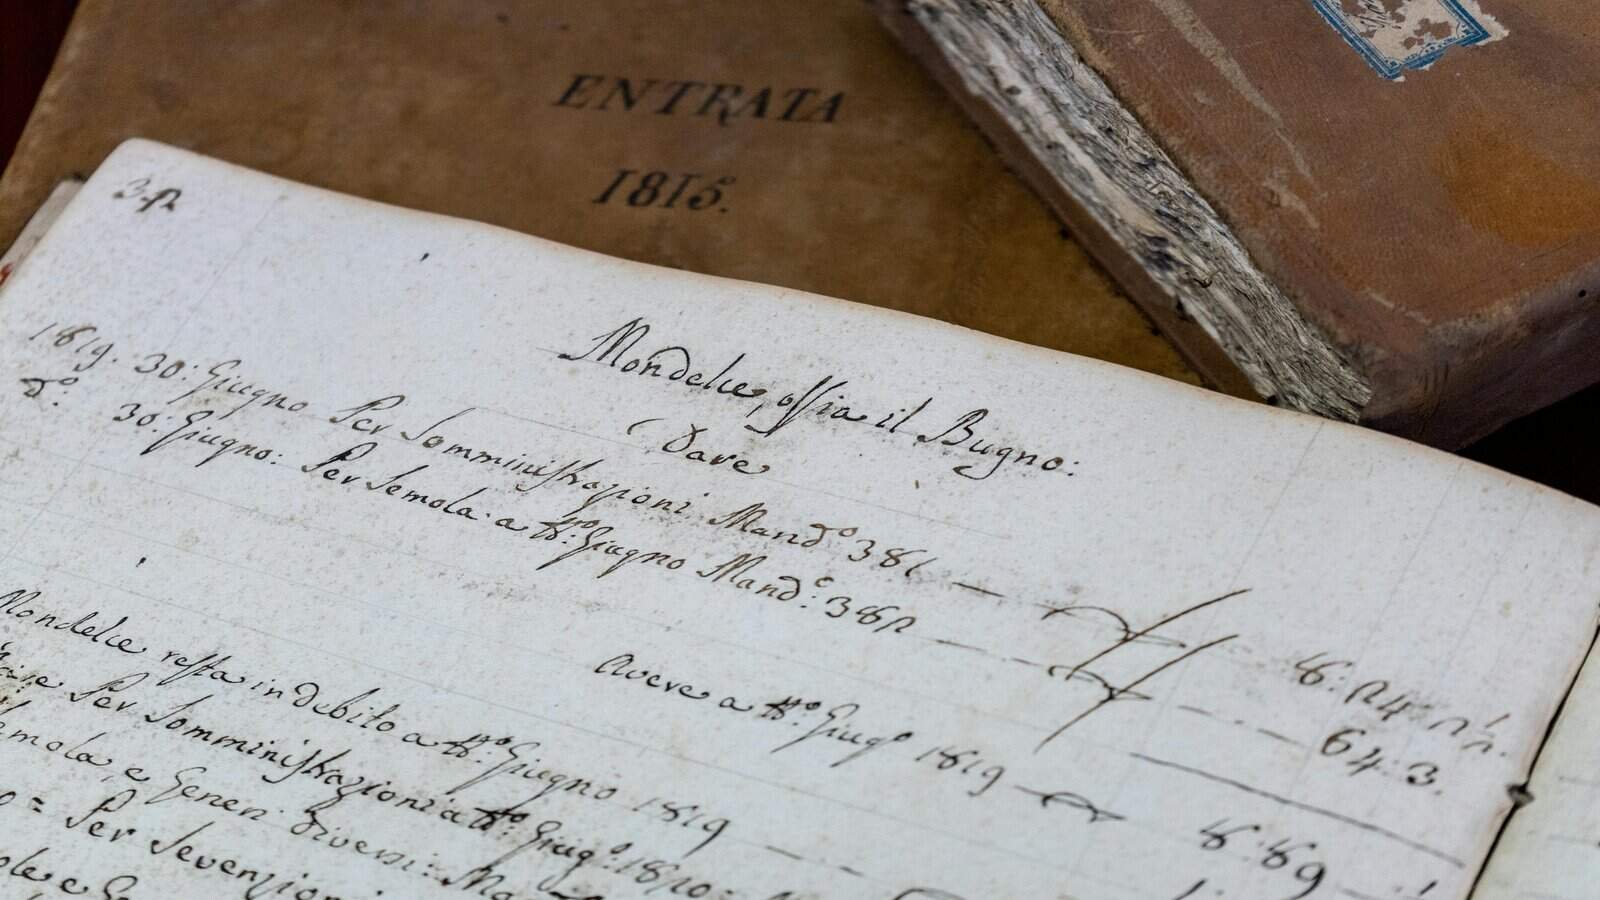 ENTRATA
1815.
Mondelce, ossia il Bugno:
Dare
1819. 30: Giugno Per Somministrazioni Mand.º 381
d.º 30: Giugno: Per Semola a tt.º Giugno Mand.º: 382
64 3.
Avere a tt.º Giug.º 1819
8:89
Mondelce resta in debito a tt.º Giugno 1819
Per Somministrazioni a tt.º Giug.º 1820:
e Generi diversi:
= Per Sevenzioni